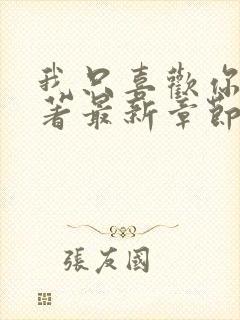 我只喜歡你
著最新章節
張友國